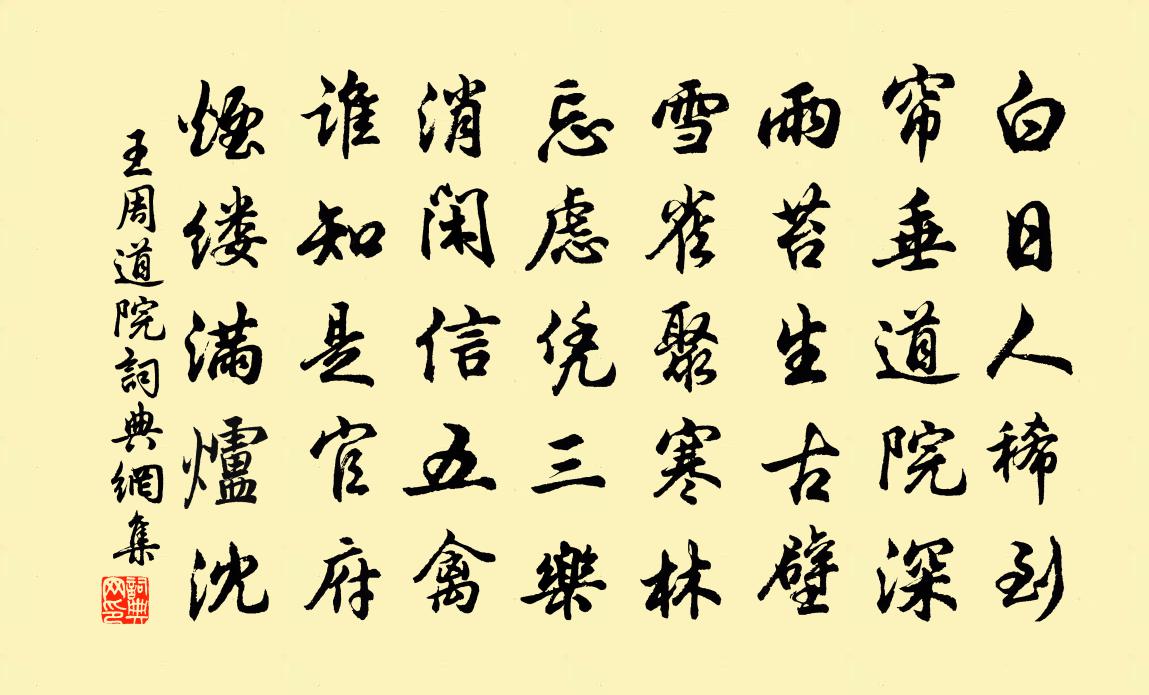 白日人稀到
帘垂道院深
雨苔生古壁
雪雀聚寒林
忘虑凭三樂
消闲信五禽
谁知是官府
煙缕满爐沈
王周道院詞典網集
詞典网印